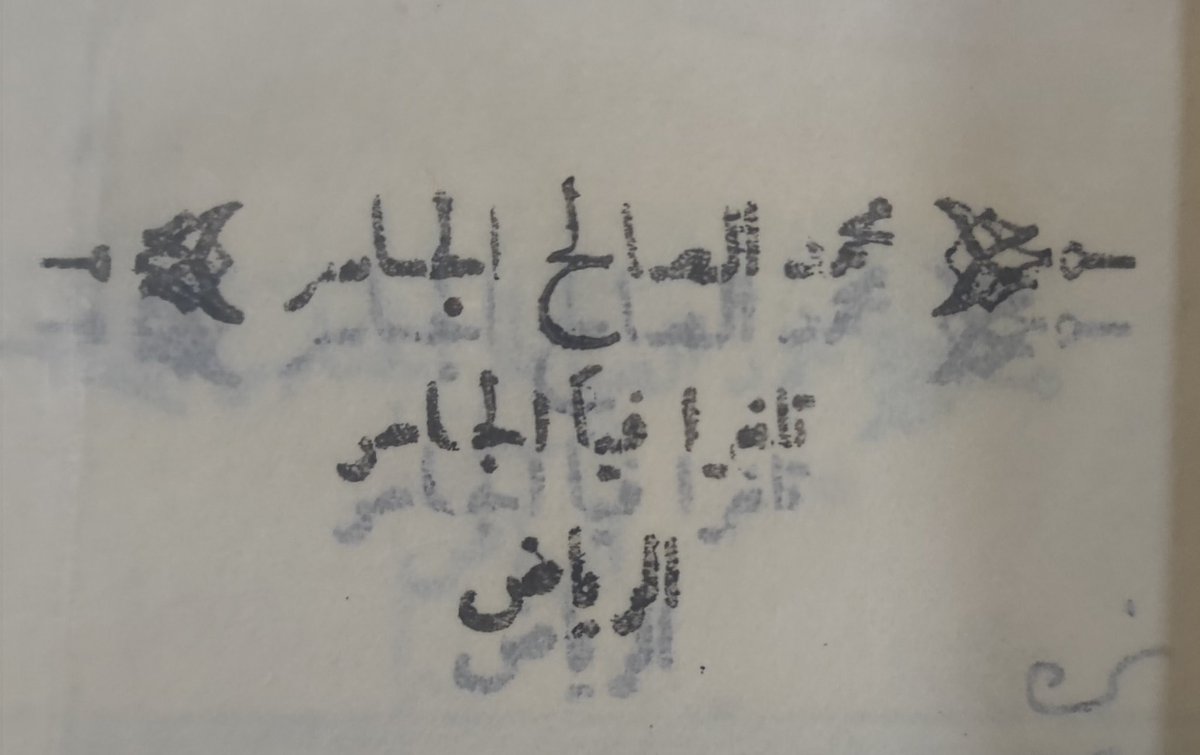 محمد الصالح الجاسر
تلغرافيا الجاسر
الرياض